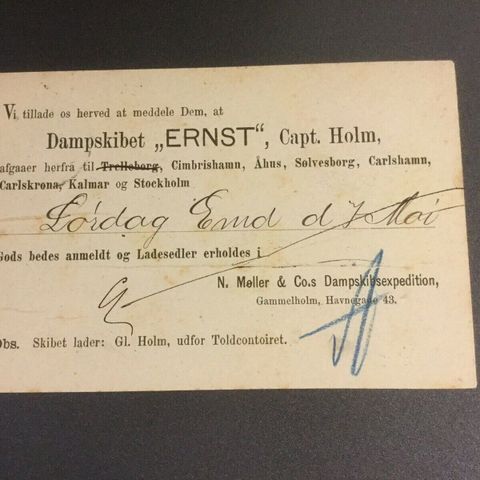 Vi tillade os herved at meddele Dem, at
Dampskibet „ERNST“, Capt. Holm,
afgaaer herfra til Trelleborg, Cimbrishamn, Åhus, Sølvesborg, Carlshamn,
Carlskrona, Kalmar og Stockholm
Lørdag Emd d 7 Mai
Gods bedes anmeldt og Ladesedler erholdes i
N. Møller & Co.s Dampskibsexpedition,
Gammelholm, Havnegade 43.
Obs. Skibet lader: Gl. Holm, udfor Toldcontoiret.